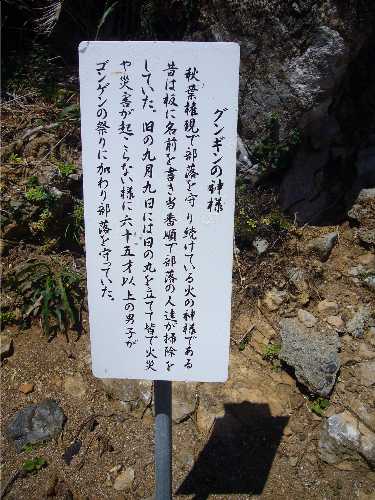 グンギンの神様
秋葉権現で部落を守り続けている火の神様である
昔は板に名前を書き当番順で部落の人達が掃除を
していた。旧の九月九日には日の丸を立てて皆で火災
や災害が起こらない様に六十五才以上の男子が
ゴンゲンの祭りに加わり部落を守っていた。